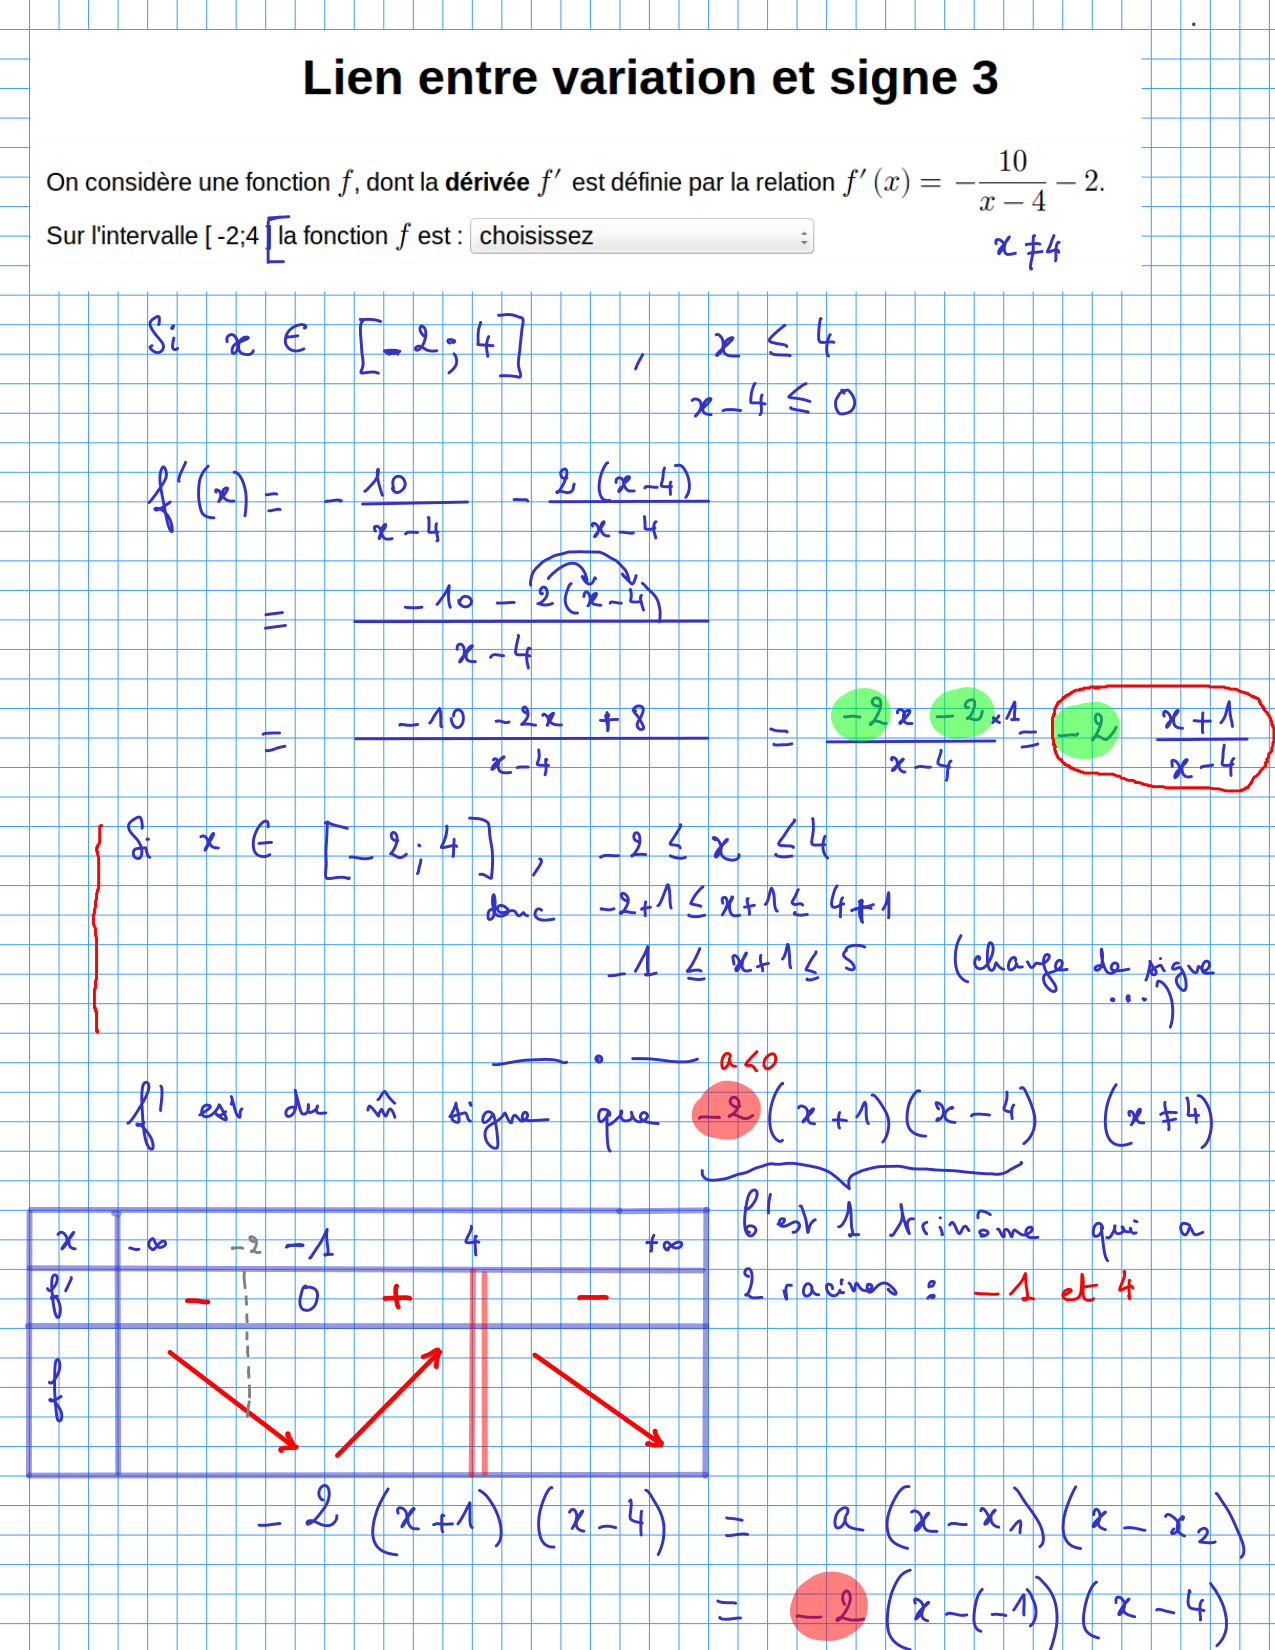 Lien entre variation et signe 3
On considère une fonction f, dont la dérivée f' est définie par la relation f'(x) = -10/(x-4) - 2.
Sur l'intervalle [ -2;4 [ la fonction f est : choisissez
x ≠ 4
Si x ∈ [-2;4] , x ≤ 4
x-4 ≤ 0
f'(x) = - 10/(x-4) - 2(x-4)/(x-4)
= (-10 - 2(x-4))/(x-4)
= (-10 -2x +8)/(x-4) = (-2x -2×1)/(x-4) = -2 (x+1)/(x-4)
Si x ∈ [-2;4] , -2 ≤ x ≤ 4
donc -2+1 ≤ x+1 ≤ 4+1
-1 ≤ x+1 ≤ 5 (change de signe
...)
a<0
f' est du m̂ signe que -2(x+1)(x-4) (x≠4)
C'est 1 trinôme qui a
2 racines : -1 et 4
x -∞ -2 -1 4 +∞
f' - 0 + -
f
-2(x+1)(x-4) = a(x-x₁)(x-x₂)
= -2(x-(-1))(x-4)